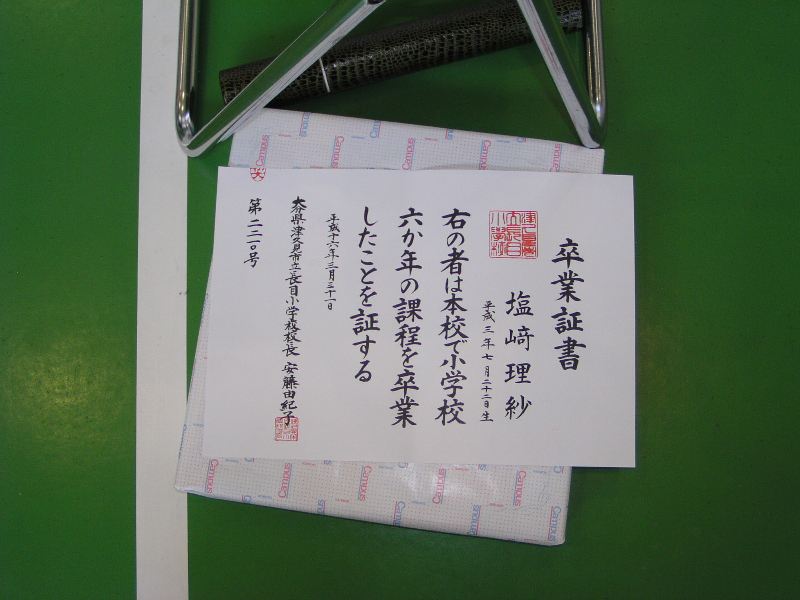 卒業証書
塩﨑理紗
平成三年七月二十二日生
右の者は本校で小学校
六か年の課程を卒業
したことを証する
平成十六年三月三十一日
大分県津久見市立長目小学校校長 安藤由紀子
第二二一〇号
Campus